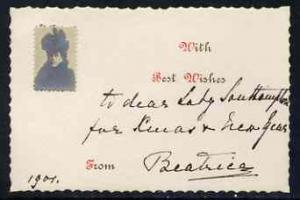 With
Best Wishes
to dear Lady Southampton
for Xmas & New Year
From Beatrice
1901.